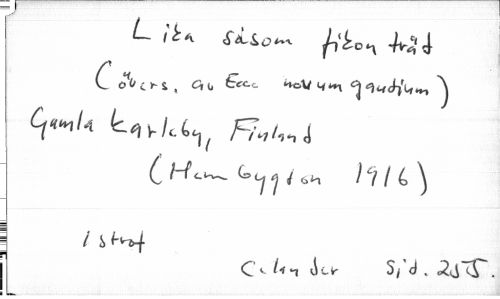 Lika såsom fikon träd
(övers. av Ecce novum gaudium)
Gamla Karleby, Finland
(Hembygden 1916)
1 strof
Celander Sid. 255.